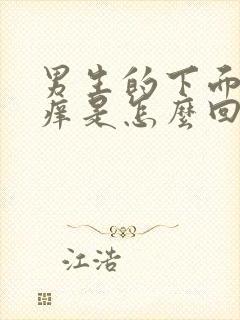 男生的下面
痒是怎麼回
江浩